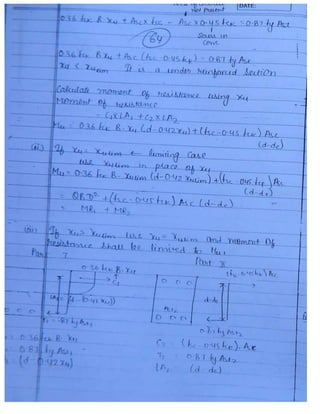 DATE:
0.36 fck B. xu + fsc x Asc - Asc x 0.45 fck = 0.87 fy Ast
64
0.36 fck B xu + Asc (fsc - 0.45 fck) = 0.87 fy Ast
xu < xulim It is a under reinforced section
Calculate moment of resistance using xu
Moment of resistance
= C1 x LA1 + C2 x LA2
Mu = 0.36 fck B. xu (d - 0.42 xu) + (fsc - 0.45 fck) Asc (d - dc)
(ii) If xu = xulim ← limiting case
use xulim in place of xu
Mu = 0.36 fck B. xulim (d - 0.42 xulim) + (fsc - 0.45 fck) Asc (d - dc)
= QBD² + (fsc - 0.45 fck) Asc (d - dc)
= MR1 + MR2
(iii) If xu > xulim use xu = xulim and moment of
resistance shall be limited to Mu1
Part I Part II
0.36 fck B. xu
(d - 0.42 xu)
T1 = .87 fy Ast1
d - dc
0.87 fy Ast2
0.36 fck B. xu C2 = (fsc - 0.45 fck). Asc
0.87 fy Ast1 T2 = 0.87 fy Ast2
(d - 0.42 xu) LA2 (d - dc)